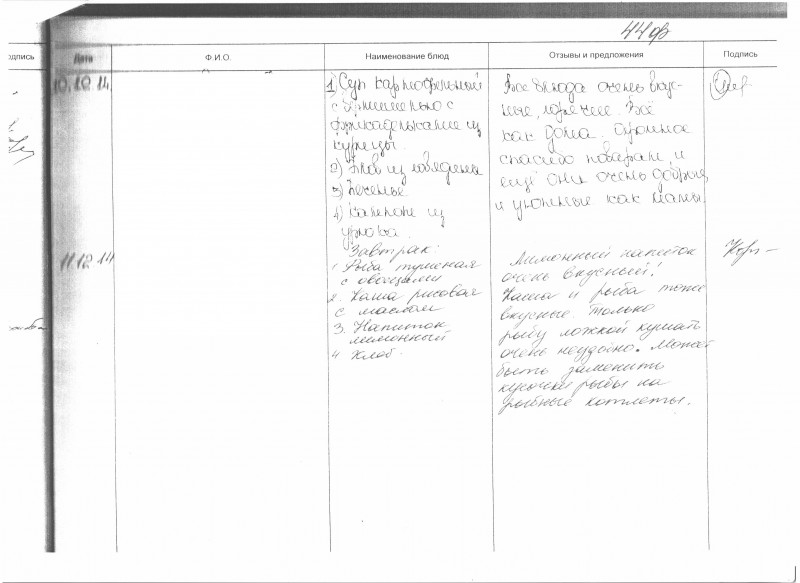 44
Дата Ф.И.О. Наименование блюд Отзывы и предложения Подпись
10.10.14
1) Суп картофельный
с
фрикадельками из
курицы
2) из говядины
3) Печенье
4) из
Все блюда очень вкус-
ные, горячие. Всё
как дома. Огромное
спасибо поварам, и
ещё они очень добрые
и как мамы.
11.12.14
Завтрак:
1 Рыба тушеная
с овощами
2. Каша рисовая
с маслом
3. Напиток
лимонный
4 Хлеб.
Лимонный напиток
очень вкусный!
Каша и рыба тоже
вкусные только
рыбу ложкой кушать
очень неудобно. Может
быть заменить
кусочки рыбы на
рыбные котлеты.